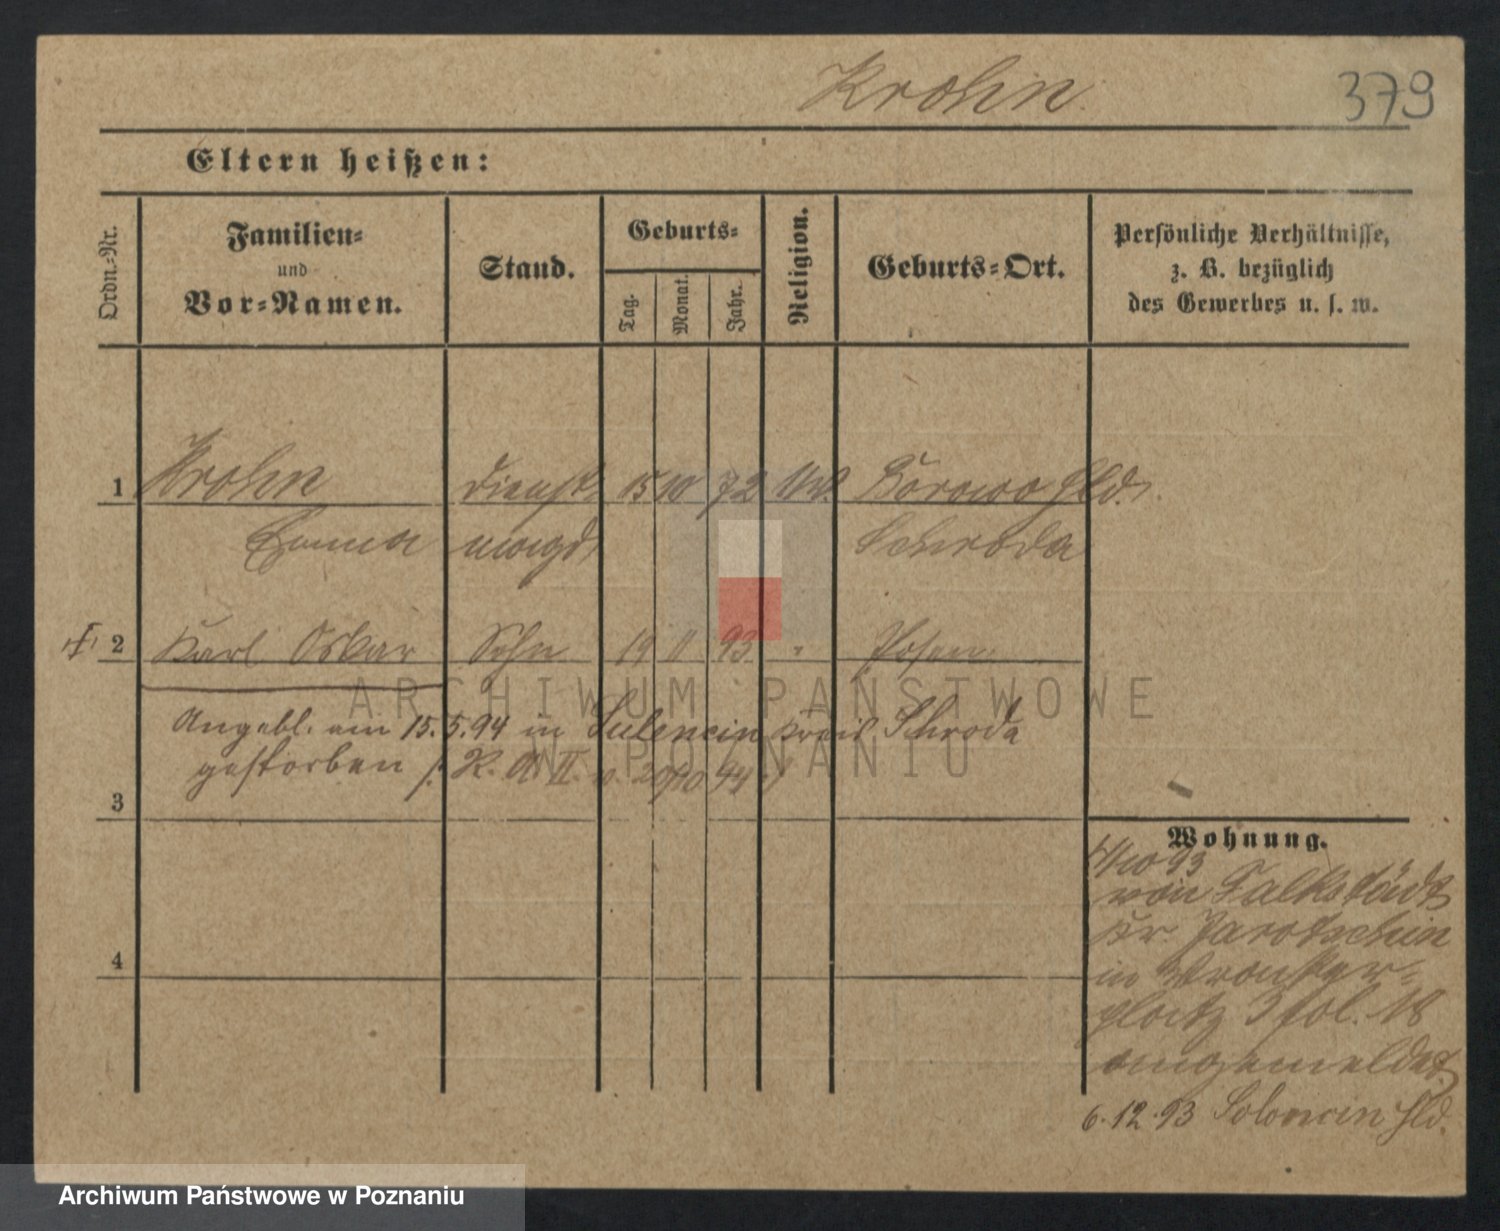 Krohn.
379
Eltern heißen:
Ordn.-Nr.
Familien-
und
Vor-Namen.
Stand.
Geburts-
Tag.
Monat.
Jahr.
Religion.
Geburts-Ort.
Persönliche Verhältnisse,
z. B. bezüglich
des Gewerbes u. s. w.
1 Krohn Dienst 15 10 72 Borowo Hld.
Emma magd Schroda
2 Karl Oskar Sohn 19 11 93 " Posen
Angebl. am 15.5.94 in Sulencin Kreis Schroda
gestorben /: R. A. II. v. 20/10 94 :/
3
4
Wohnung.
10 93
von Falkstädt
Kr. Jarotschin
in Wronker-
platz 3 fol. 18
angemeldet
6.12.93 Hld.
ARCHIWUM PAŃSTWOWE
W POZNANIU
Archiwum Państwowe w Poznaniu